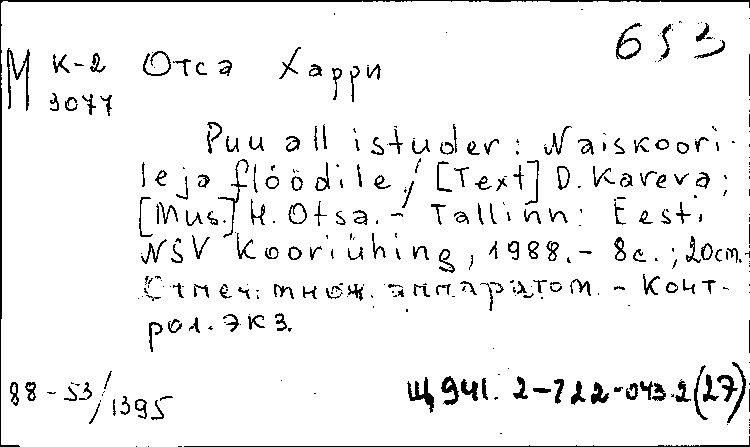 653
М К-2 Отса Харри
3077
Puu all istuder: Naiskoori-
le ja flöödile / [Text] D. Kareva;
[Mus.] H. Otsa. – Tallinn: Eesti
NSV Kooriühing, 1988. – 8 с.; 20 cm. –
Отпеч. множ. аппаратом. – Конт-
рол. экз.
88-53/1395
Щ941.2-722-043.2(27)